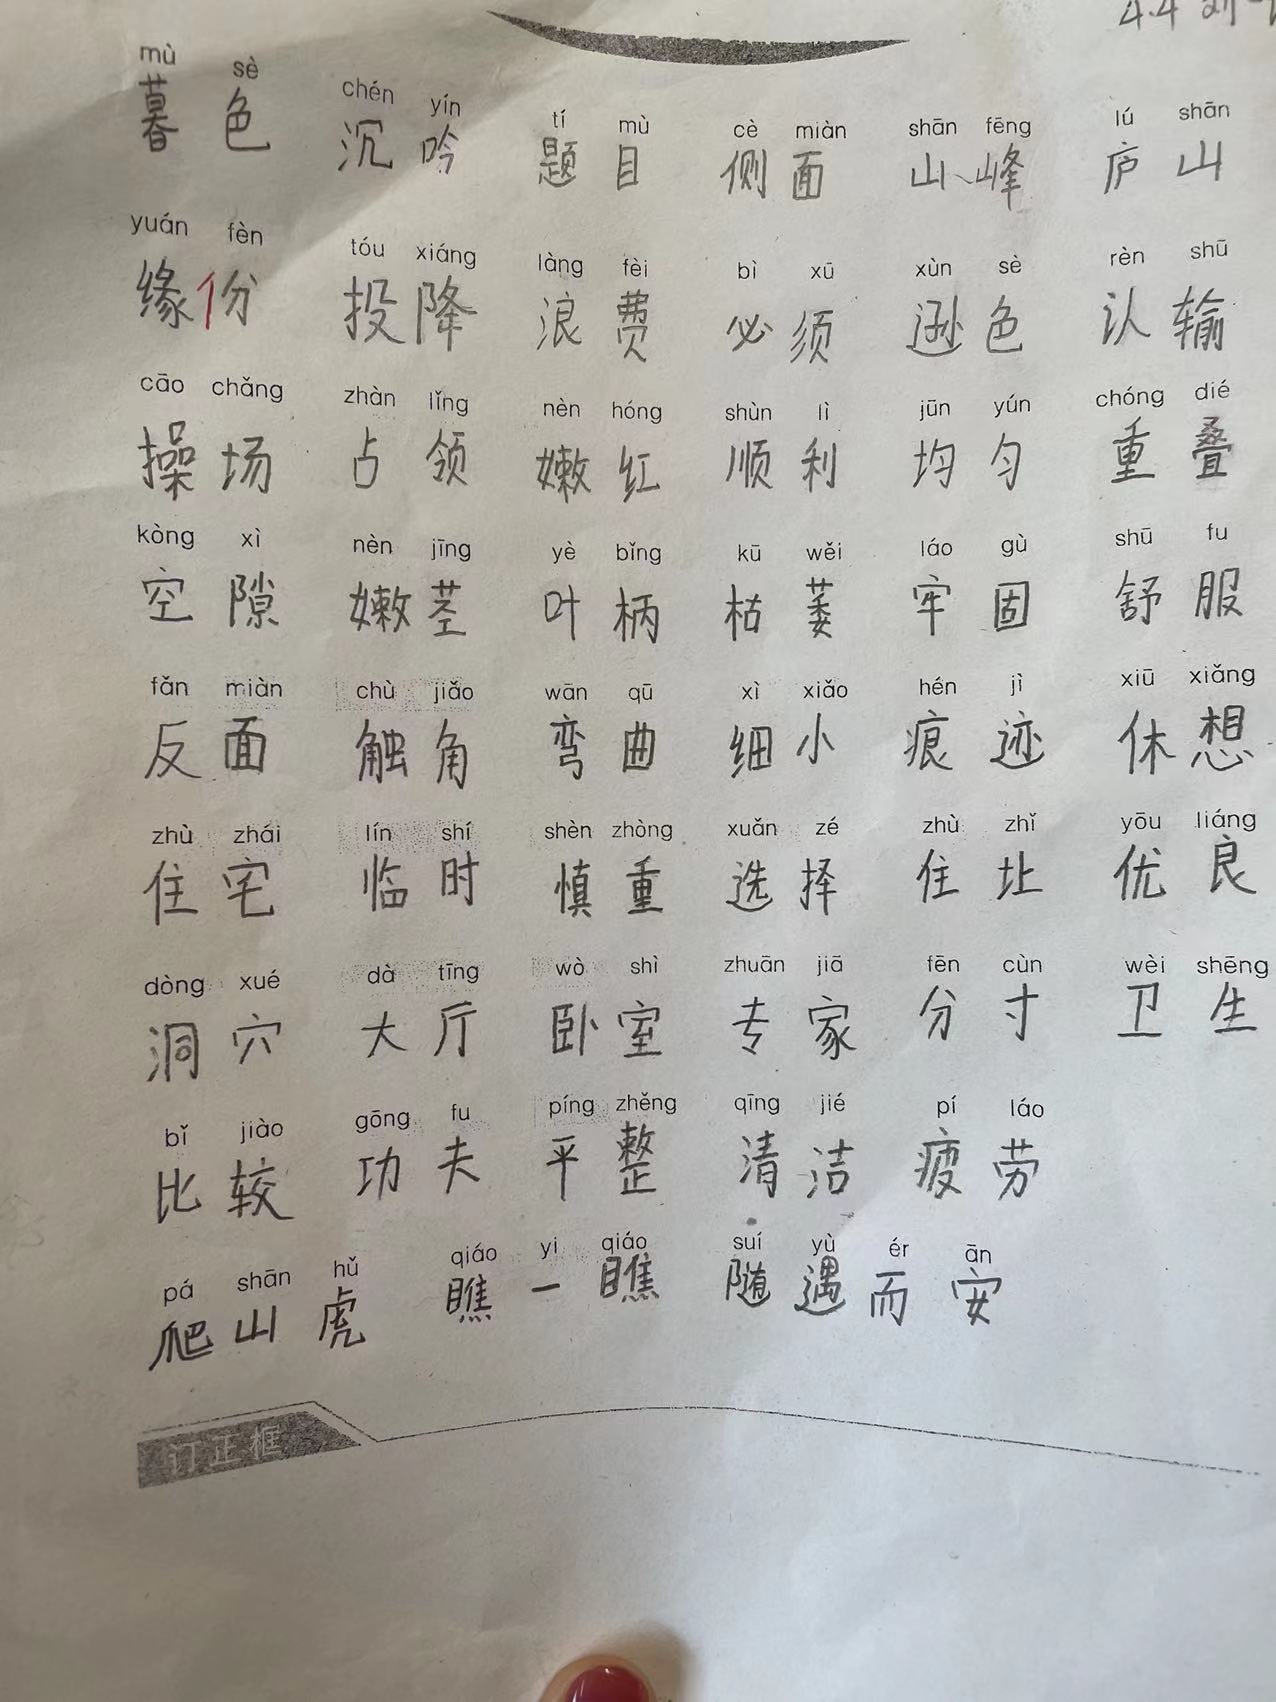 4.4
mù sè chén yín tí mù cè miàn shān fēng lú shān
暮色 沉吟 题目 侧面 山峰 庐山
yuán fèn tóu xiáng làng fèi bì xū xùn sè rèn shū
缘份 投降 浪费 必须 逊色 认输
cāo chǎng zhàn lǐng nèn hóng shùn lì jūn yún chóng dié
操场 占领 嫩红 顺利 均匀 重叠
kòng xì nèn jīng yè bǐng kū wěi láo gù shū fu
空隙 嫩茎 叶柄 枯萎 牢固 舒服
fǎn miàn chù jiǎo wān qū xì xiǎo hén jì xiū xiǎng
反面 触角 弯曲 细小 痕迹 休想
zhù zhái lín shí shèn zhòng xuǎn zé zhù zhǐ yōu liáng
住宅 临时 慎重 选择 住址 优良
dòng xué dà tīng wò shì zhuān jiā fēn cùn wèi shēng
洞穴 大厅 卧室 专家 分寸 卫生
bǐ jiào gōng fu píng zhěng qīng jié pí láo
比较 功夫 平整 清洁 疲劳
pá shān hǔ qiáo yi qiáo suí yù ér ān
爬山虎 瞧一瞧 随遇而安
订正框